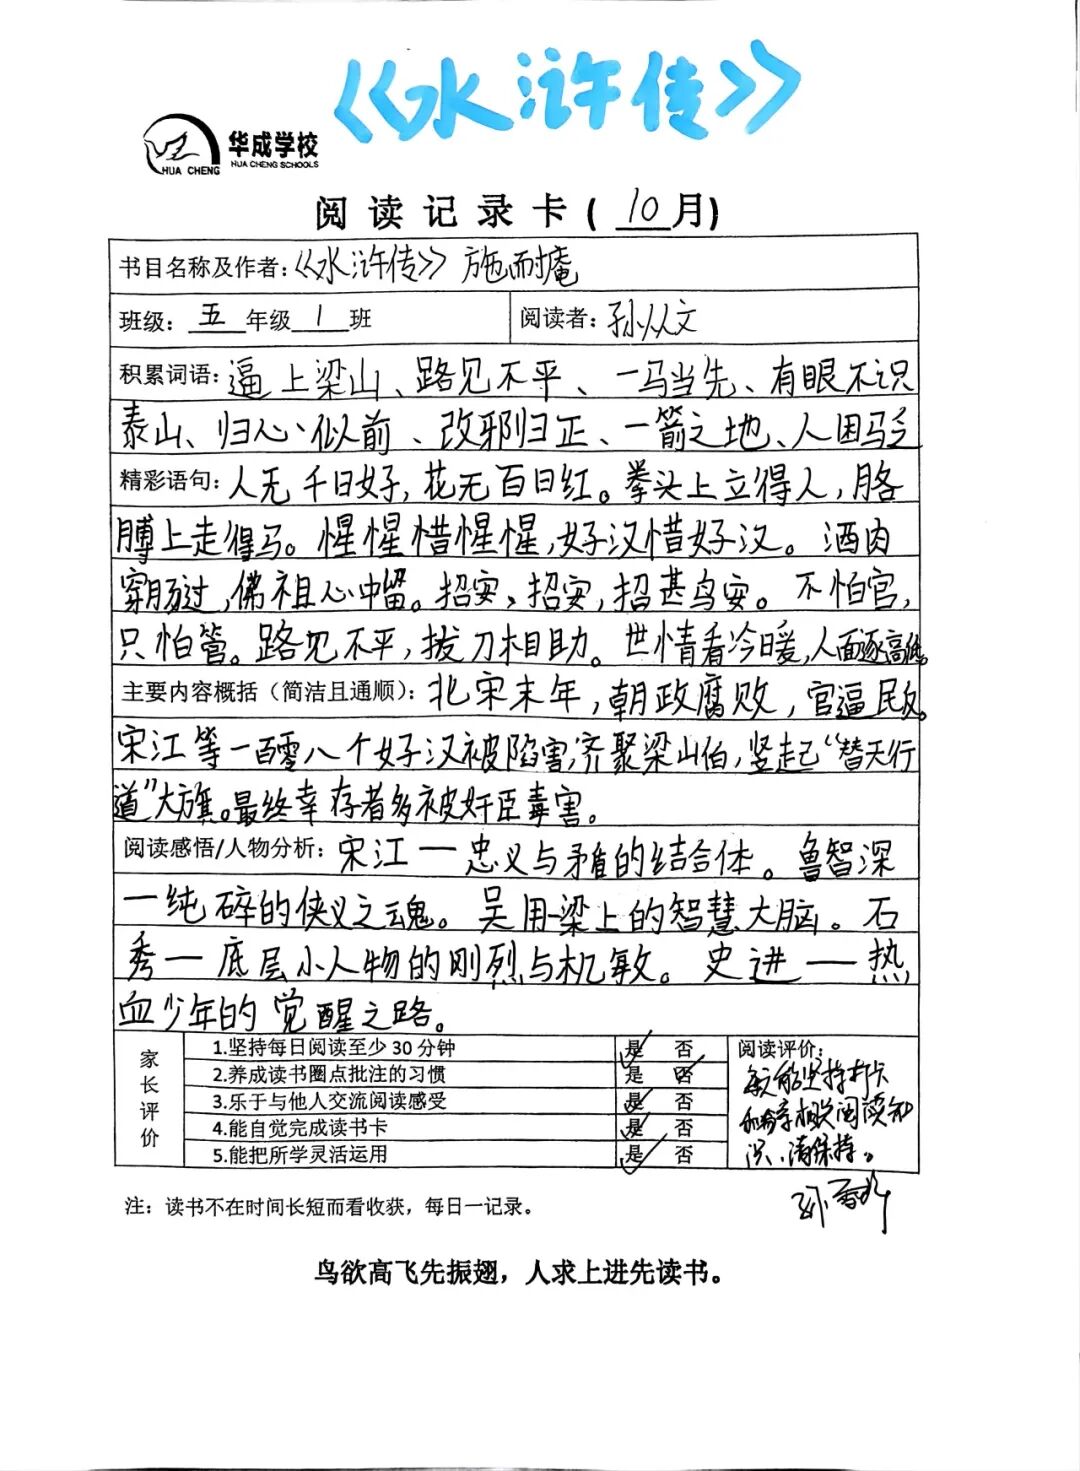 《水浒传》
华成学校
HUA CHENG
HUA CHENG SCHOOLS
阅读记录卡(10月)
书目名称及作者:《水浒传》施耐庵
班级:五年级1班
阅读者:孙从文
积累词语:逼上梁山、路见不平、一马当先、有眼不识
泰山、归心似前、改邪归正、一箭之地、人困马乏
精彩语句:人无千日好,花无百日红。拳头上立得人,胳
膊上走得马。惺惺惜惺惺,好汉惜好汉。酒肉
穿肠过,佛祖心中留。招安、招安,招甚鸟安。不怕官,
只怕管。路见不平,拔刀相助。世情看冷暖,人面逐高低。
主要内容概括(简洁且通顺):北宋末年,朝政腐败,官逼民反。
宋江等一百零八个好汉被陷害,齐聚梁山伯,竖起“替天行
道”大旗。最终幸存者多被奸臣毒害。
阅读感悟/人物分析:宋江一忠义与矛盾的结合体。鲁智深
一纯碎的侠义之魂。吴用一梁上的智慧大脑。石
秀一底层小人物的刚烈与机敏。史进一热
血少年的觉醒之路。
家长评价
1.坚持每日阅读至少30分钟 是 否
2.养成读书圈点批注的习惯 是 否
3.乐于与他人交流阅读感受 是 否
4.能自觉完成读书卡 是 否
5.能把所学灵活运用 是 否
阅读评价:
每天能坚持打卡
和分享相关阅读知
识,请保持。
注:读书不在时间长短而看收获,每日一记录。
鸟欲高飞先振翅,人求上进先读书。